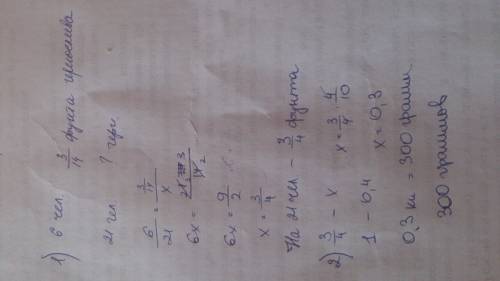 1) 6 чел. 3/14 фунта чернослива
21 чел ? черн
6/21 = 3/14 / x
6x = 21 · 3 / 14 2
6x = 9/2
x = 3/4
На 21 чел – 3/4 фунта
2) 3/4 – x
1 – 0,4
x = 3/4 · 4/10
x = 0,3
0,3 кг = 300 грамм.
300 граммов